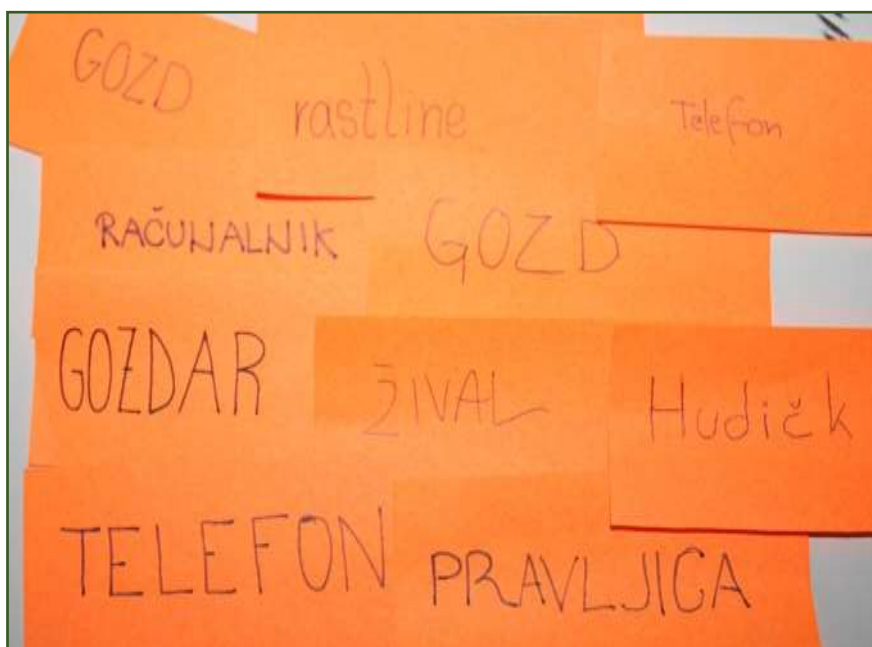 GOZD
rastline
Telefon
RAČUNALNIK
GOZD
GOZDAR
ŽIVAL
Hudičk
TELEFON
PRAVLJICA